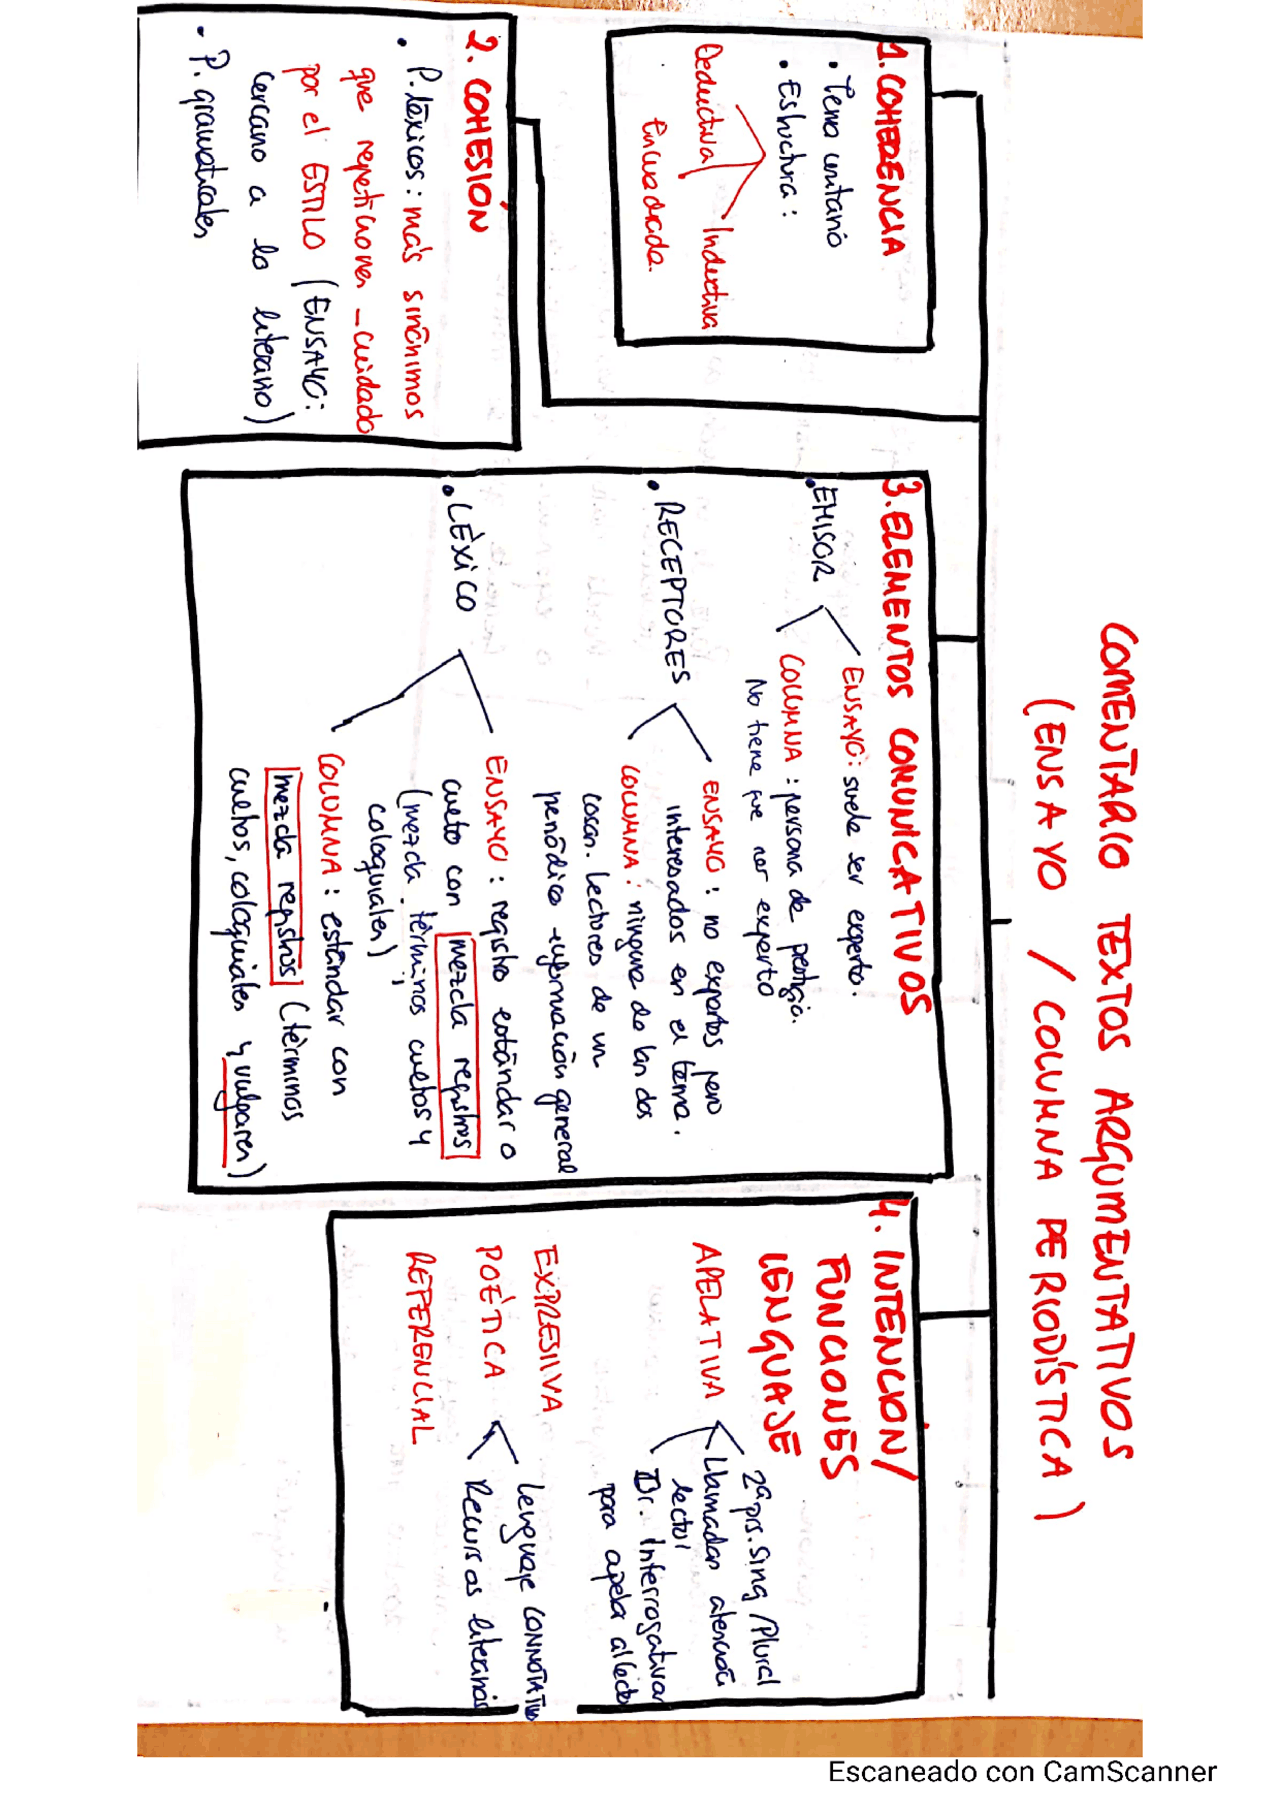 COMENTARIO TEXTOS ARGUMENTATIVOS
(ENSAYO / COLUMNA PERIODÍSTICA)
1. COHERENCIA
• Tema unitario
• Estructura:
Deductiva Inductiva
Encuadrada.
2. COHESIÓN
• P. léxicos: más sinónimos
que repeticiones - cuidado
por el ESTILO (ENSAYO:
cercano a lo literario)
• P. gramaticales
3. ELEMENTOS COMUNICATIVOS
• EMISOR
ENSAYO: suele ser experto.
COLUMNA: persona de prestigio.
No tiene que ser experto
• RECEPTORES
ENSAYO: no expertos pero
interesados en el tema.
COLUMNA: ninguna de las dos
cosas. Lectores de un
periódico información general
• LÉXICO
ENSAYO: registro estándar o
culto con mezcla registros
(mezcla términos cultos y
coloquiales)
COLUMNA: estándar con
mezcla registros (términos
cultos, coloquiales y vulgares)
4. INTENCIÓN/
FUNCIONES
LENGUAJE
APELATIVA
2ª prs. Sing/Plural
Llamadas atención
lector
Or. Interrogativas
para apelar al lector
EXPRESIVA
POÉTICA
Lenguaje CONNOTATIVO
Recursos literarios
REFERENCIAL
Escaneado con CamScanner